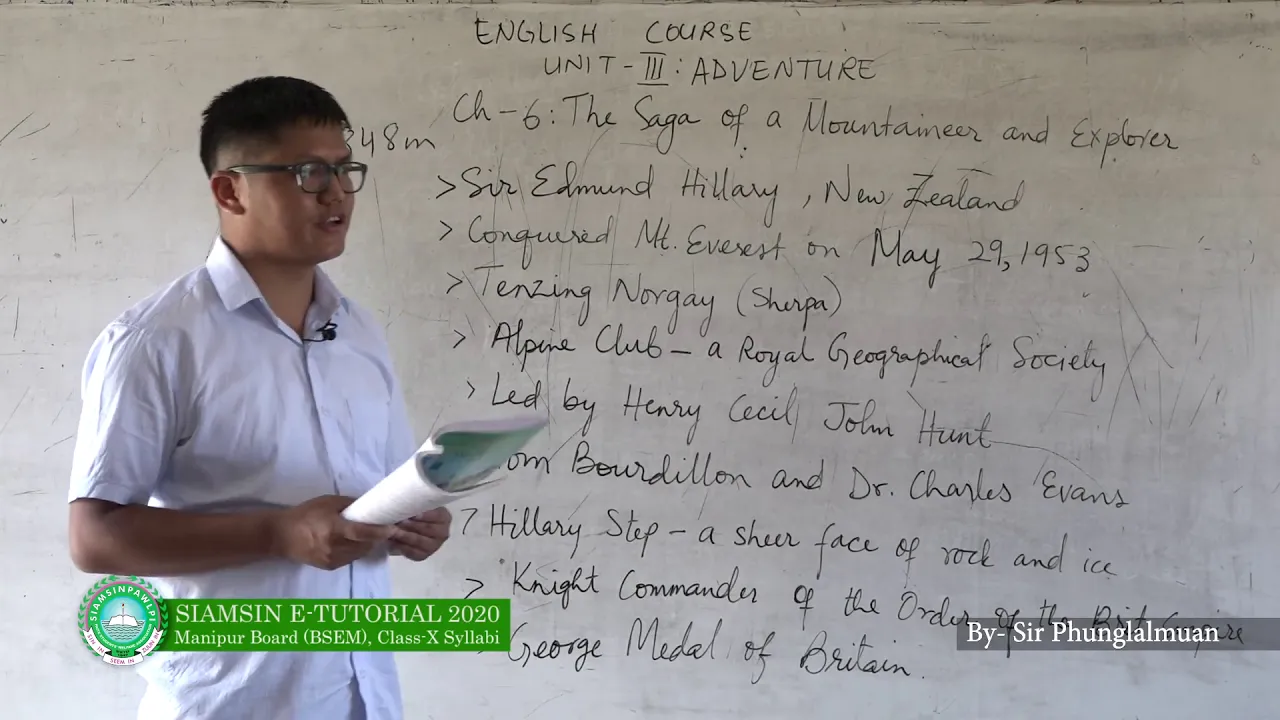 ENGLISH COURSE
UNIT-III: ADVENTURE
Ch-6: The Saga of a Mountaineer and Explorer
48m
> Sir Edmund Hillary, New Zealand
> Conquered Mt. Everest on May 29, 1953
> Tenzing Norgay (Sherpa)
> Alpine Club - a Royal Geographical Society
> Led by Henry Cecil John Hunt
Bourdillon and Dr. Charles Evans
> Hillary Step - a sheer face of rock and ice
> Knight Commander of the Order of the Brit. Empire
George Medal of Britain.
SIAMSINPAWLPI
SIAMSIN E-TUTORIAL 2020
Manipur Board (BSEM), Class-X Syllabi
By- Sir Phunglalmuan